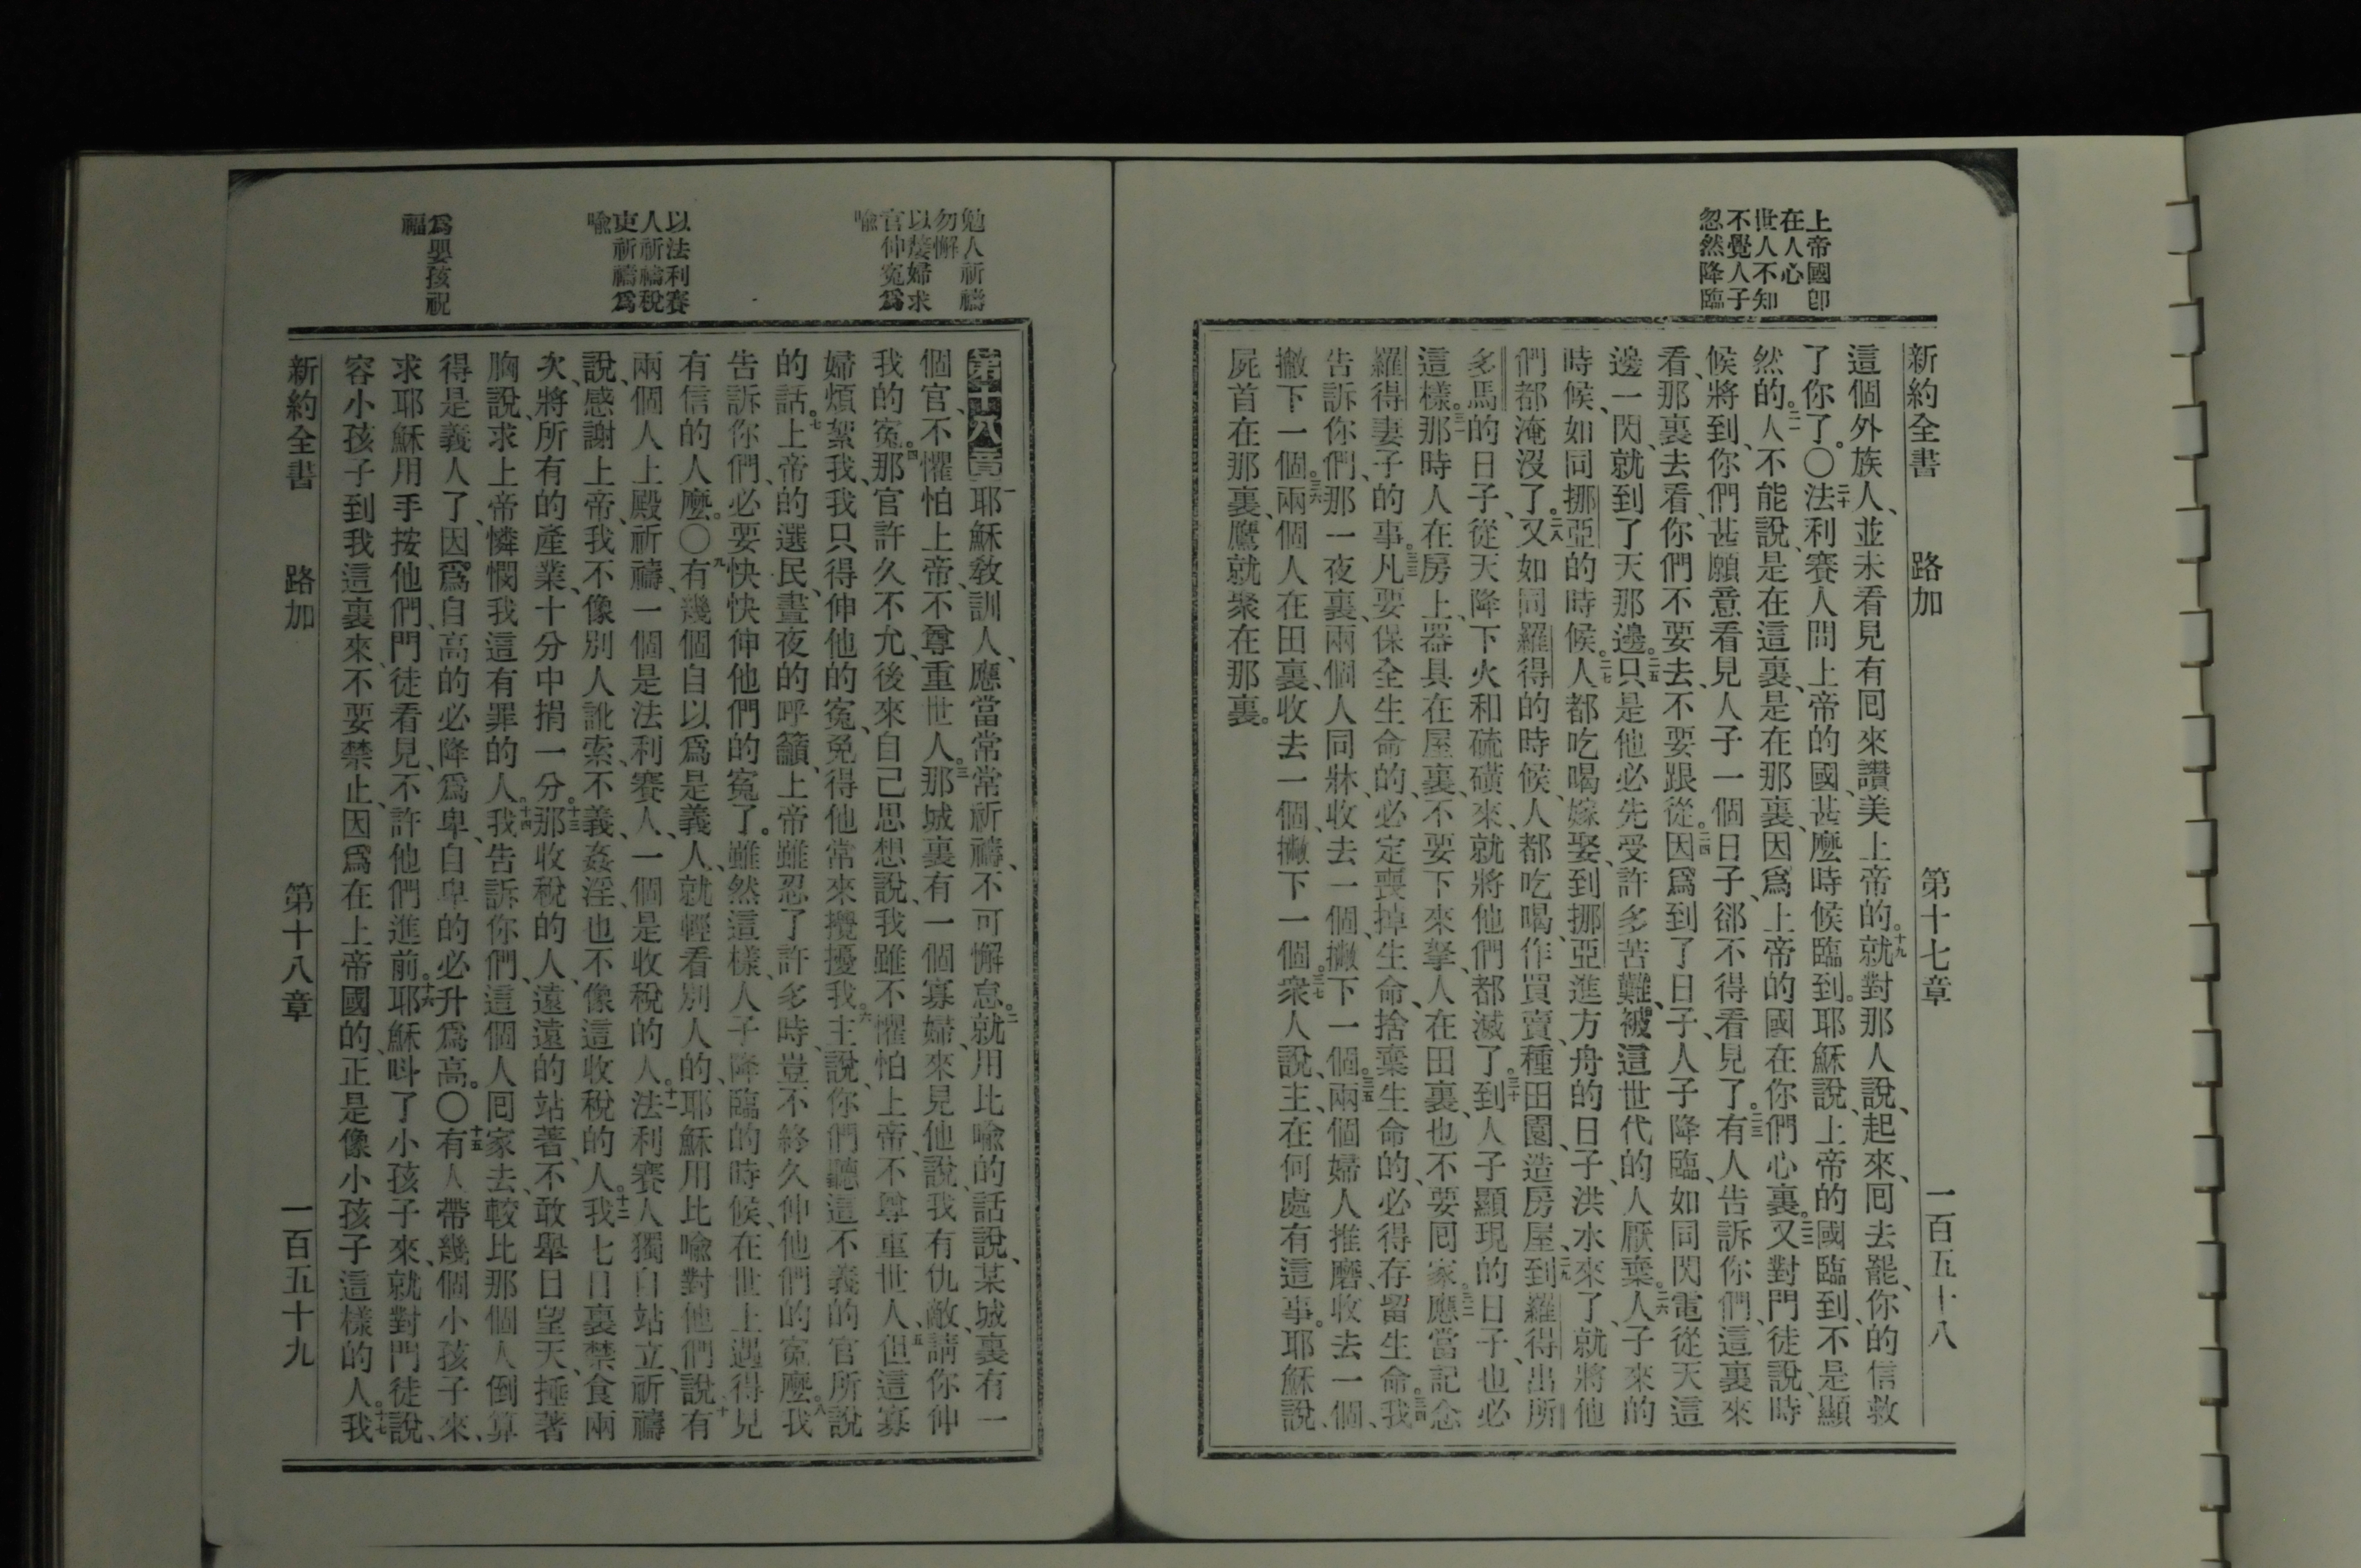 上帝國卽
在人心
世人不知
不覺人子
忽然降臨
新約全書 路加 第十七章 一百五十八
這個外族人、並未看見有囘來讚美上帝的。十九就對那人說、起來、囘去罷、你的信救
了你了。〇二十法利賽人問上帝的國、甚麼時候臨到。耶穌說、上帝的國臨到、不是顯
然的。二一人不能說、是在這裏、是在那裏、因爲上帝的國在你們心裏。二二又對門徒說、時
候將到、你們甚願意看見人子一個日子、卻不得看見了。二三有人告訴你們、這裏來
看、那裏去看、你們不要去、不要跟從。二四因爲到了日子、人子降臨、如同閃電從天這
邊一閃、就到了天那邊。二五只是他必先受許多苦難、被這世代的人厭棄。二六人子來的
時候、如同挪亞的時候。二七人都吃喝嫁娶、到挪亞進方舟的日子、洪水來了、就將他
們都淹沒了。二八又如同羅得的時候、人都吃喝、作買賣、種田園、造房屋、二九到羅得出所
多馬的日子、從天降下火和硫磺來、就將他們都滅了。三十到人子顯現的日子、也必
這樣。三一那時人在房上、器具在屋裏、不要下來拏、人在田裏、也不要囘家。三二應當記念
羅得妻子的事。三三凡要保全生命的、必定喪掉生命、捨棄生命的、必得存留生命。三四我
告訴你們、那一夜裏、兩個人同牀、收去一個、撇下一個。三五兩個婦人推磨、收去一個、
撇下一個。三六兩個人在田裏、收去一個、撇下一個。三七衆人說、主、在何處有這事。耶穌說、
屍首在那裏、鷹就聚在那裏。
勉人祈禱
勿懈
以嫠婦求
官伸寃爲
喻
以法利賽
人祈禱稅
吏祈禱爲
喻
爲嬰孩祝
福
第十八章 一耶穌敎訓人、應當常常祈禱、不可懈怠。二就用比喻的話說、某城裏有一
個官、不懼怕上帝、不尊重世人。三那城裏有一個寡婦、來見他、說、我有仇敵、請你伸
我的寃。四那官許久不允、後來自己思想說、我雖不懼怕上帝、不尊重世人、五但這寡
婦煩絮我、我只得伸他的寃、免得他常來攪擾我。六主說、你們聽這不義的官所說
的話。七上帝的選民、晝夜的呼籲、上帝雖忍了許多時、豈不終久伸他們的寃麼。八我
告訴你們、必要快快伸他們的寃了。雖然這樣、人子降臨的時候、在世上遇得見
有信的人麼。〇九有幾個自以爲是義人、就輕看別人的、耶穌用比喻對他們說、十有
兩個人上殿祈禱、一個是法利賽人、一個是收稅的人。十一法利賽人獨自站立、祈禱
說、感謝上帝、我不像別人訛索、不義、姦淫、也不像這收稅的人。十二我七日裏禁食兩
次、將所有的產業、十分中捐一分。十三那收稅的人、遠遠的站著、不敢舉目望天、捶著
胸說、求上帝憐憫我這有罪的人。十四我告訴你們、這個人囘家去、較比那個人倒算
得是義人了、因爲自高的必降爲卑、自卑的必升爲高。〇十五有人帶幾個小孩子來、
求耶穌用手按他們、門徒看見、不許他們進前。十六耶穌呌了小孩子來、就對門徒說、
容小孩子到我這裏來、不要禁止、因爲在上帝國的、正是像小孩子這樣的人。十七我
新約全書 路加 第十八章 一百五十九